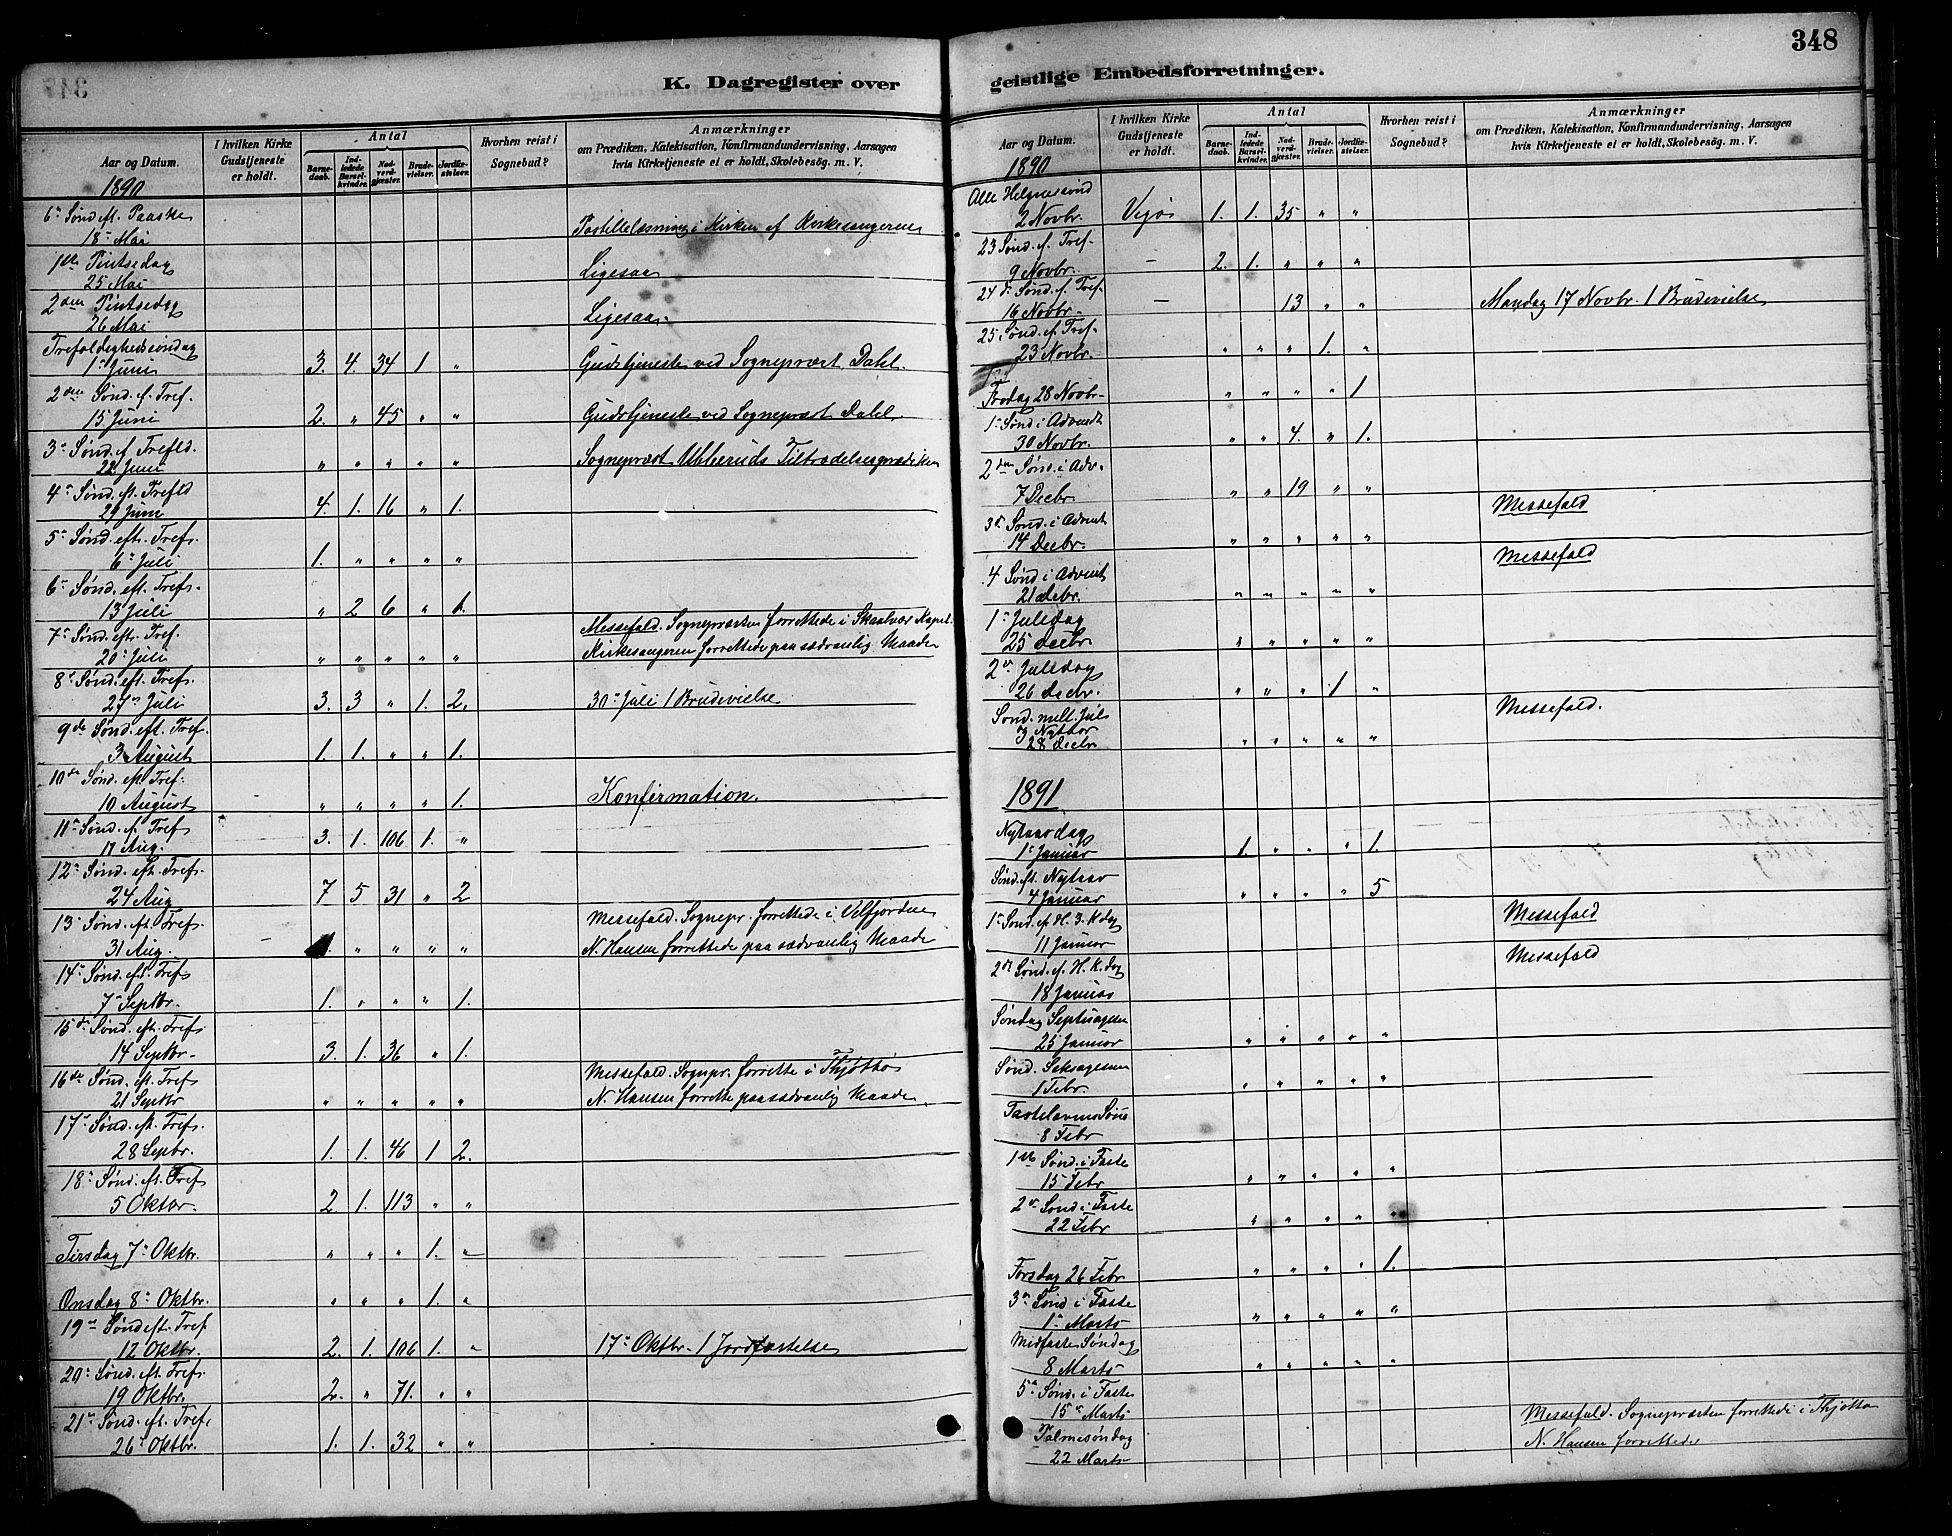 348
K. Dagregister over geistlige Embedsforretninger.
Aar og Datum.
I hvilken Kirke Gudstjeneste er holdt.
Antal
Barnedaab.
Indledede Barselkvinder.
Nadverdgjester.
Brudevielser.
Jordfæstelser.
Hvorhen reist i Sognebud?
Anmærkninger
om Prædiken, Katekisation, Konfirmandundervisning, Aarsagen
hvis Kirketjeneste ei er holdt, Skolebesøg. m. V.
1890
6te Sønd eft. Paaske
18de Mai Postillelæsning i Kirken af Kirkesangeren
1ste Pintsedag
25 Mai Ligesaa
2den Pintsedag
26 Mai Ligesaa
Trefoldighedssøndag
1ste Juni 3. 4. 34 1 " Gudstjeneste ved Sogneprest Dahl.
2den Sønd. ef. Tref.
15 Juni 2. " 45 " " Gudstjeneste ved Sogneprest Dahl.
3de Sønd. ef Trefld.
22 Juni " " " " " Sogneprest Tiltrædelsesprædiken
4de Sønd. eft. Trefld
29 Juni 4. 1. 16 " 1.
5te Sønd. eft. Tref.
6te Juli 1. " " " "
6te Sønd. eft. Tref.
13 Juli " 2 6 " 1.
7de Sønd. eft. Tref. Messefald. Sognepresten forrettede i Skaalvær Kapel.
20de Juli " " " " " Kirkesangeren forrettede paa sædvanlig Maade
8de Sønd. eft. Tref.
27de Juli 3. 3 " 1. 2. 30te Juli 1 Brudevielse
9de Sønd. eft. Tref.
3 August 1. 1. " " 1.
10de Sønd. eft. Tref.
10 August " " " " 1. Konfirmation.
11te Sønd. ef. Tref
17 Aug. 3. 1. 106 1. "
12te Sønd. eft. Tref.
24 Aug 7 5 31 " 2
13de Sønd. eft. Tref. Messefald. Sognepr. forrettede i Velfjorden
31 Aug. " " " " N. Hansen forrettede paa sædvanlig Maade
14de Sønd. eft. Tref
7de Septbr. 1. " " " 1.
15de Sønd. eft. Tref
14 Septbr. 3. 1. 36 " 1.
16de Sønd. eft. Tref Messefald. Sognpr. forrette i Thjøtta
21 Septbr " " " " " N. Hansen forrette paa sædvanlig Maade.
17de Sønd. eft. Tref.
28 Septbr. 1. 1. 46 1 2.
18de Sønd. eft. Tref
5 Oktbr. 2. 1. 113 " "
Tirsdag 7de Oktbr. " " " 1. "
Onsdag 8de Oktbr. " " " 1. "
19de Sønd eft. Tref
12 Oktbr. 2. 1. 106 1. " 17de Oktbr. 1 Jordfæstelse
20de Sønd. eft. Tref.
19 Oktbr. 2. " 71. " "
21de Sønd. eft. Tref.
26de Oktbr. 1. 1. 32 " "
Aar og Datum.
I hvilken Kirke Gudstjeneste er holdt.
Antal
Barnedaab.
Indledede Barselkvinder.
Nadverdgjester.
Brudevielser.
Jordfæstelser.
Hvorhen reist i Sognebud?
Anmærkninger
om Prædiken, Katekisation, Konfirmandundervisning, Aarsagen
hvis Kirketjeneste ei er holdt, Skolebesøg. m. V.
1890
Alle Helgensønd
2 Novbr. 1. 1. 35 " "
23 Sønd. ef. Tref.
9 Novbr. - 2. 1. " " "
24de Sønd. ef. Tref.
16 Novbr. - 13 " " Mandag 17 Novbr. 1 Brudevielse
25 Sønd. ef. Tref.
23 Novbr. " " " 1. "
Fredag 28 Novbr. " " " " 1
1ste Sønd i Advendt
30 Novbr. " " 4. " 1.
2den Sønd. i Adv.
7 Decbr " " 19 " "
3de Sønd. i Advent Messefald
14 Decbr. " " " " "
4 Sønd i Advent Messefald
21 Decbr. " " " " "
1ste Juledag
25 Decbr " " " " "
2den Juledag
26 Decbr. " " " 1 "
Sønd. mell. Jul Messefald.
og Nytaar
28 Decbr " " " " "
1891
Nytaarsdag
1ste Januar 1. " " " 1.
Sønd. eft. Nytaar
4 Januar " " " " 5
1ste Sønd. ef. H. 3. K. dag Messefald
11 Januar
2den Sønd. ef. H. K. dag Messefald
18 Januar
Søndag Septuagesm
25 Januar " " " " "
Sønd. Seksagesm
1 Febr. " " " " "
Fastelavns Sønd
8 Febr
1ste Sønd. i Faste
15 Febr " " " " "
2den Sønd i Faste
22 Febr " " " " "
Torsdag 26 Febr " " " " 1.
3de Sønd i Faste
1ste Marts " " " " "
Midfaste Søndag
8 Marts " " " " "
5te Sønd. i Faste
15de Marts Messefald. Sognepresten forrettede i Thjøtta
Palmesøndag N. Hansen forrettede
22 Marts